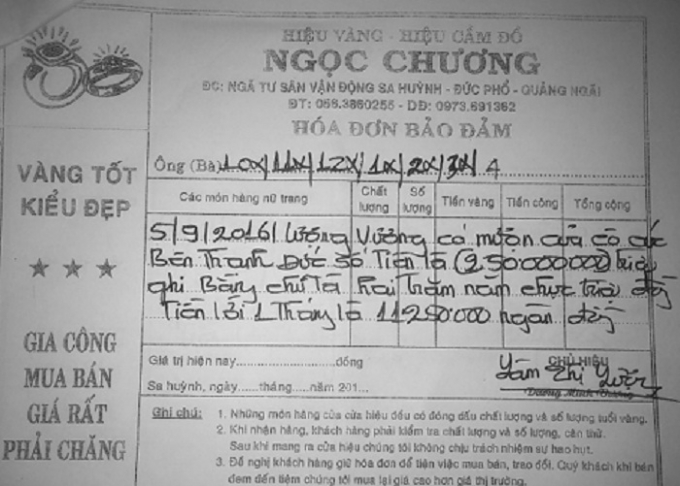 HIỆU VÀNG - HIỆU CẦM ĐỒ
NGỌC CHƯƠNG
ĐC: NGÃ TƯ SÂN VẬN ĐỘNG SA HUỲNH - ĐỨC PHỔ - QUẢNG NGÃI
ĐT: 055.3860255 - DĐ: 0973.691362
HÓA ĐƠN BẢO ĐẢM
VÀNG TỐT
KIỂU ĐẸP
GIA CÔNG
MUA BÁN
GIÁ RẤT
PHẢI CHĂNG
Ông (Bà) 10x/11x/12x/1x/2x/3x/4
Các món hàng nữ trang Chất lượng Số lượng Tiền vàng Tiền công Tổng cộng
5/9/2016/ Lương Vương có mượn của cô
Bến Thanh Đức số Tiền là (250000000)
ghi Bằng chữ là hai Trăm năm chục triệu đồng
Tiền lời 1 Tháng là 11250000 ngàn đồng
Giá trị hiện nay....................đồng
Sa huỳnh, ngày......tháng.....năm 201...
CHỦ HIỆU
Ghi chú: 1. Những món hàng của cửa hiệu đều có đóng dấu chất lượng và số lượng tuổi vàng.
2. Khi nhận hàng, khách hàng phải kiểm tra chất lượng và số lượng, cẩn thữ.
Sau khi mang ra cửa hiệu chúng tôi không chịu trách nhiệm sự hao hụt.
3. Đề nghị khách hàng giữ hóa đơn để tiện việc mua bán, trao đổi. Quý khách khi bán
đem đến tiệm chúng tôi mua lại giá cao hơn giá thị trường.